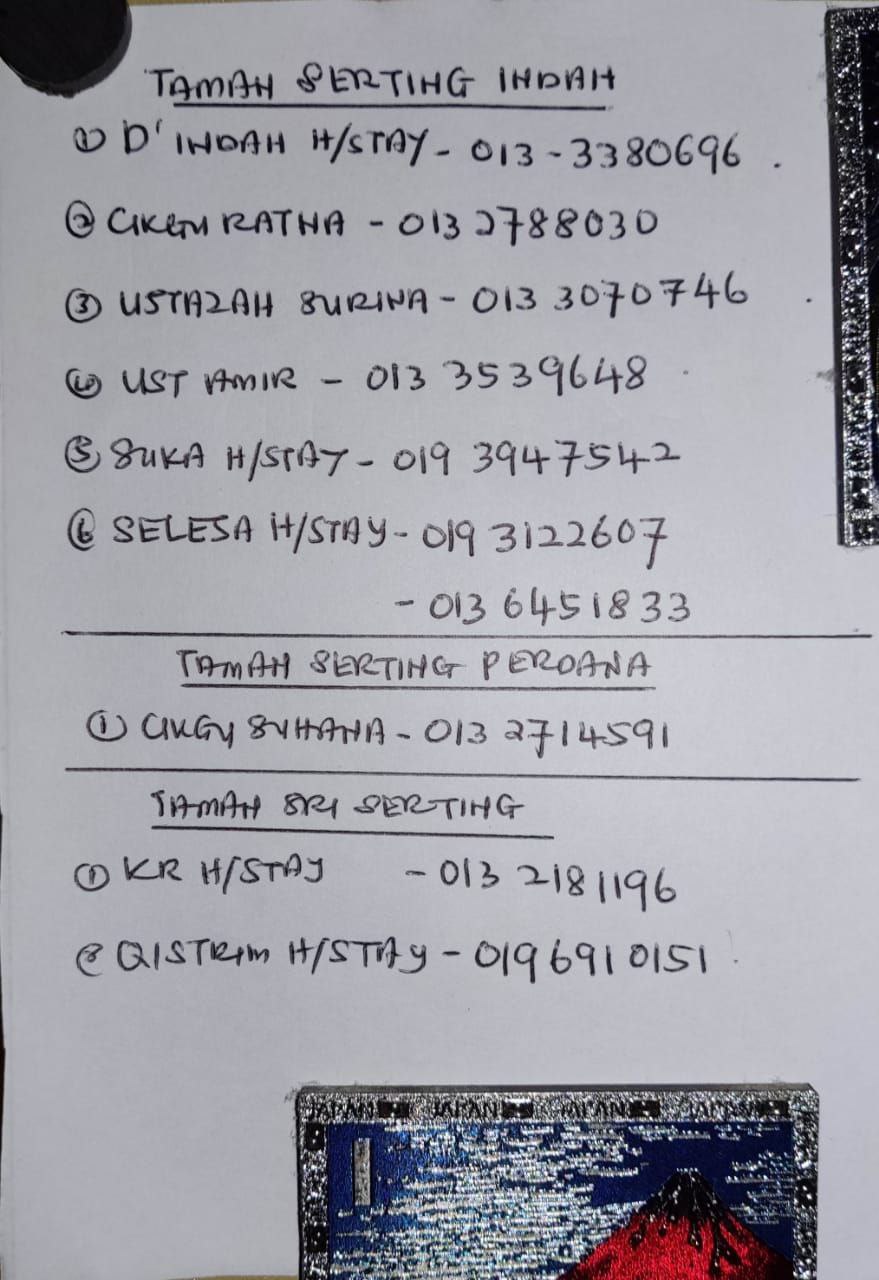 TAMAN SERTING INDAH
① D' INDAH H/STAY - 013 - 3380696 .
② CIKGU RATNA - 013 2788030
③ USTAZAH SURINA - 013 3070746 .
④ UST AMIR - 013 3539648 .
⑤ SUKA H/STAY - 019 3947542
⑥ SELESA H/STAY - 019 3122607
- 013 6451833
TAMAN SERTING PERDANA
① CIKGU SUHANA - 013 2714591
TAMAN SRI SERTING
① KR H/STAY - 013 2181196
② QISTRIM H/STAY - 019 6910151 .
JAPAN JAPAN JAPAN JAPAN